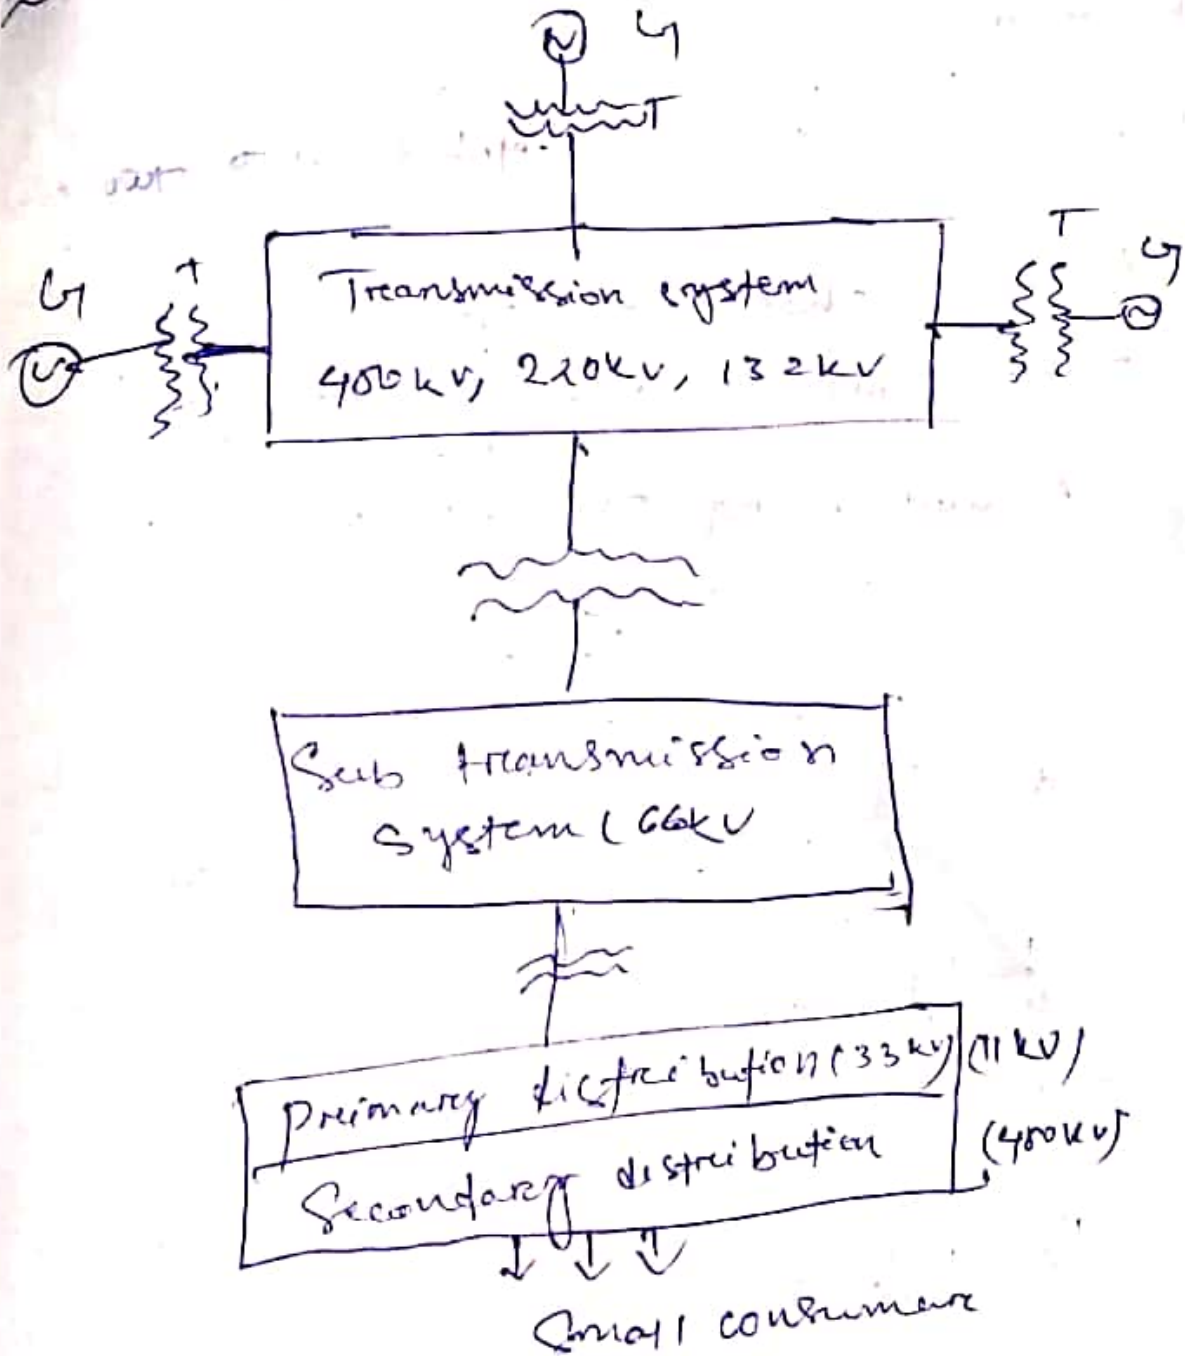 G
T
T
G
T
G
Transmission system
400kv, 220kv, 132kv
Sub transmission
System ( 66kV
Primary distribution (33kv) (11kV)
Secondary distribution (400kv)
Small consumer